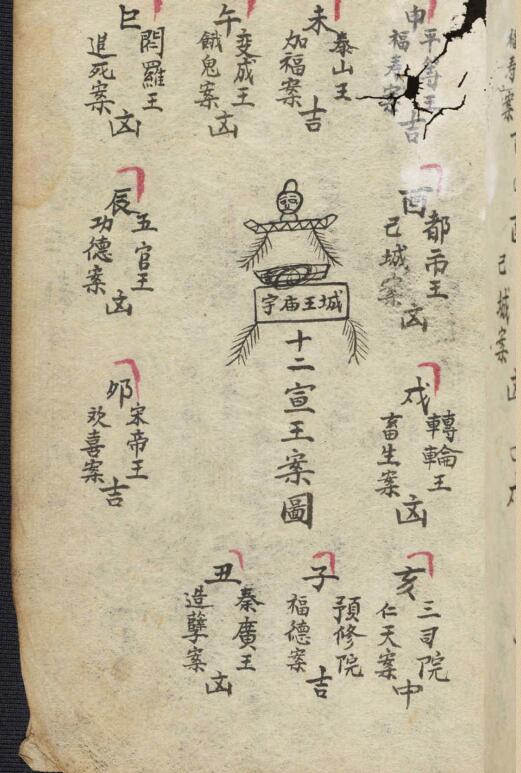 己城案
申
平等王
福寿案
吉
未
泰山王
加福案
吉
午
变成王
餓鬼案
凶
巳
閻羅王
追死案
凶
酉
都市王
己城案
凶
城王庙宇
十二宣王案圖
辰
五官王
功德案
凶
戌
轉輪王
畜生案
凶
卯
宋帝王
欢喜案
吉
亥
三司院
仁天案
中
子
預修院
福德案
吉
丑
秦廣王
造孽案
凶